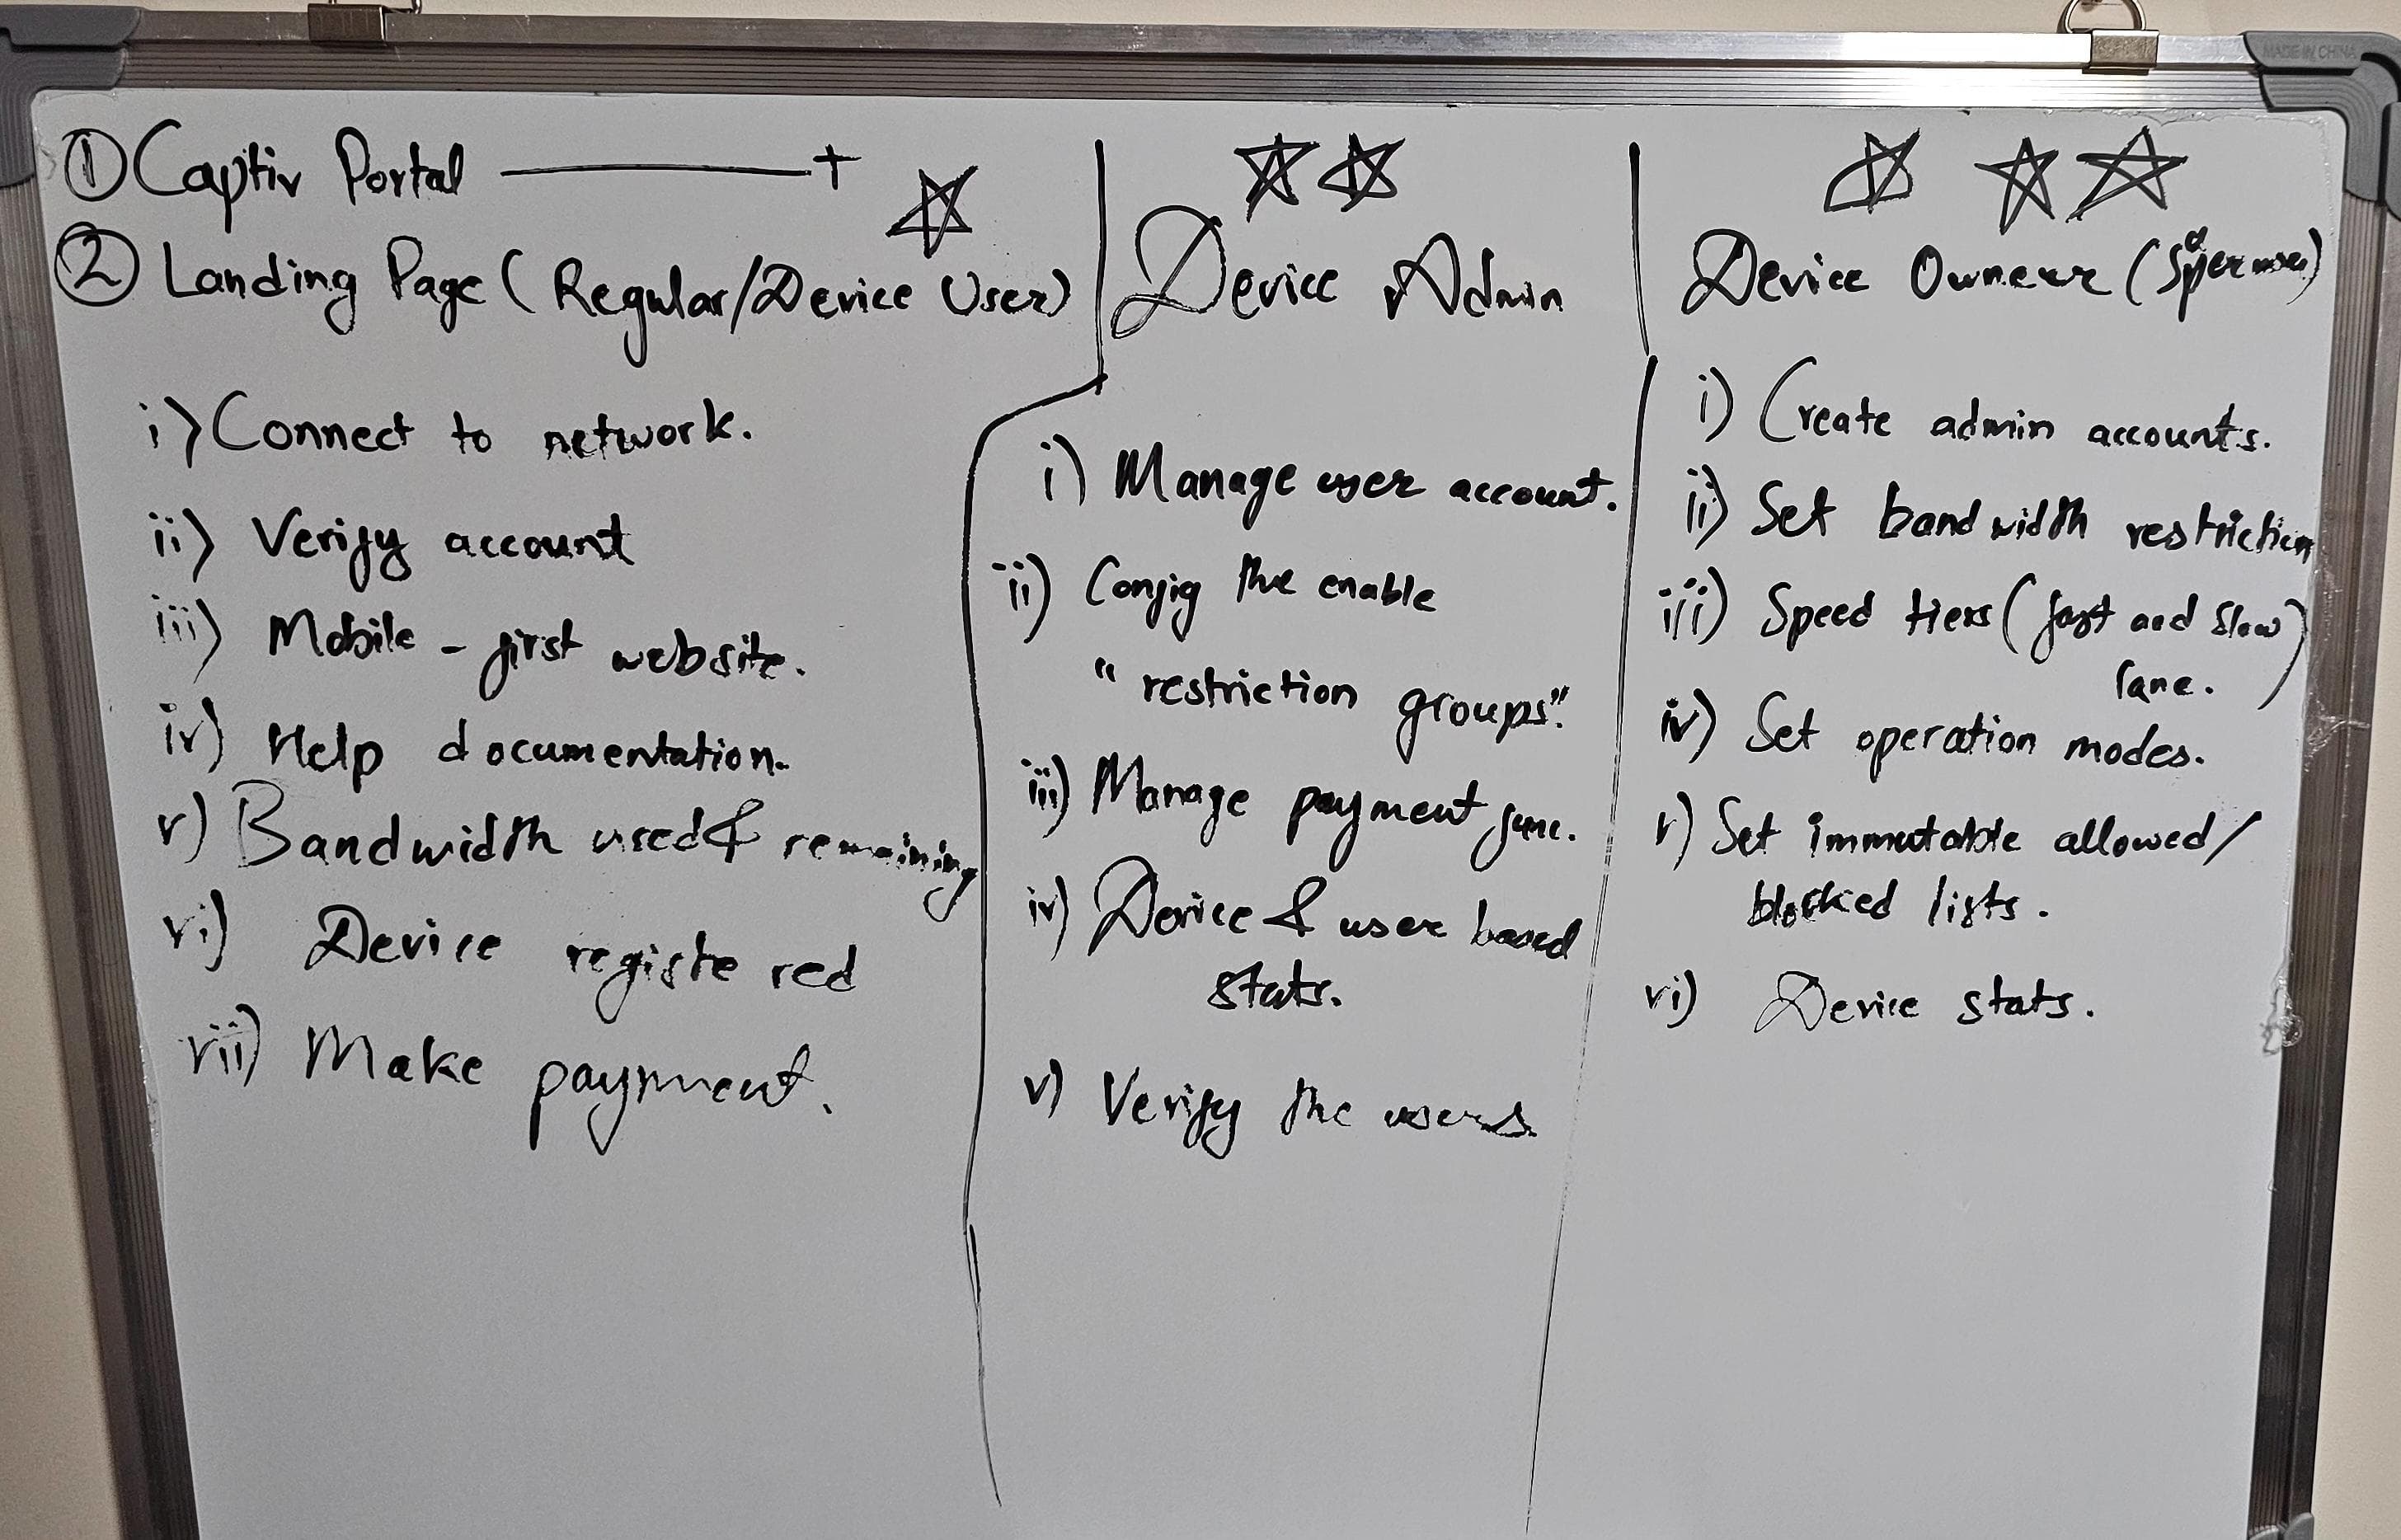 ① Captiv Portal
② Landing Page (Regular/Device User)
i) Connect to network.
ii) Verify account
iii) Mobile - first website.
iv) Help documentation.
v) Bandwidth used & remaining
vi) Device registered
vii) Make payment.
Device Admin
i) Manage user account.
ii) Config the enable
"restriction groups".
iii) Manage payment func.
iv) Device & user based
stats.
v) Verify the users
Device Owner (Superuser)
i) Create admin accounts.
ii) Set bandwidth restriction
iii) Speed tiers (fast and slow)
lane.
iv) Set operation modes.
v) Set immutable allowed/
blocked lists.
vi) Device stats.
MADE IN CHINA